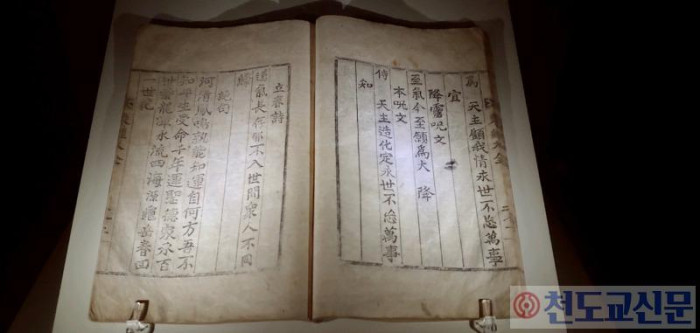 爲 天主顧我情永世不忘萬事
宜
降靈呪文
至氣今至願爲大 降
本呪文
侍 天主造化定永世不忘萬事
知
立春詩
道氣長存邪不入世間衆人不同
歸
絶句
河清鳳鳴孰能知運自何方吾不
知平生受命千年運聖德家承百
世業龍潭水流四海源龜岳春回
一世花
천도교신문